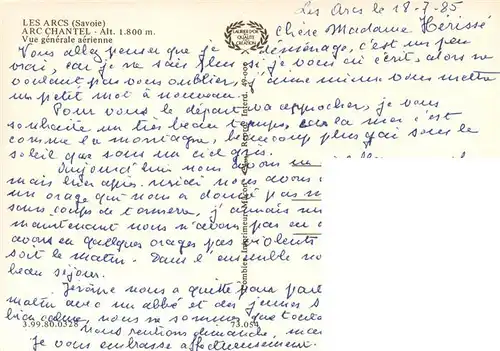 LES ARCS (Savoie)
ARC CHANTEL - Alt. 1.800 m.
Vue générale aérienne
LAURIER D'OR DE QUALITÉ CRÉATION
Les Arcs le 18-7-85
Chère Madame Hérissé
Vous allez penser que je déménage, c'est un peu
vrai, car je ne sais plus si je vous ai écrit, alors ne
voulant pas vous oublier, j'aime mieux vous mettre
un petit mot à nouveau.
Pour vous le départ va approcher, je vous
souhaite un très beau temps, la mer c'est
comme la montagne, beaucoup plus gai sous le
soleil que sous un ciel gris.
Aujourd'hui nous avons un
mais hier après-midi nous avons
un orage qui nous a donné pas m
coups de tonnerre,
maintenant nous n'avons pas eu
avons eu quelques orages pas violents
soit le matin. Dans l'ensemble no
beau séjour.
Jérôme nous a quitté pour par
matin avec un abbé et des jeunes
bien calme, nous ne sommes que
Nous rentrons dimanche,
Je vous embrasse affectueusement.
3.99.80.0328
73.054
Combier Imprimeur Mâcon
Reproduction Interd. 49-000